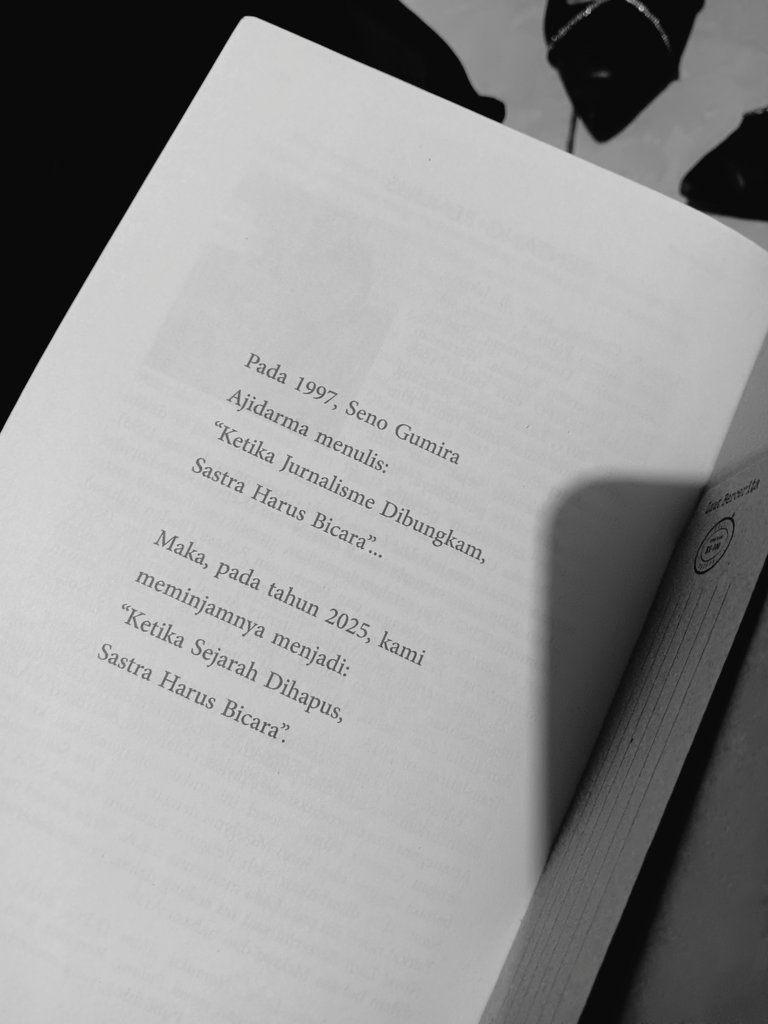 Pada 1997, Seno Gumira
Ajidarma menulis:
“Ketika Jurnalisme Dibungkam,
Sastra Harus Bicara”...
Maka, pada tahun 2025, kami
meminjamnya menjadi:
“Ketika Sejarah Dihapus,
Sastra Harus Bicara”.